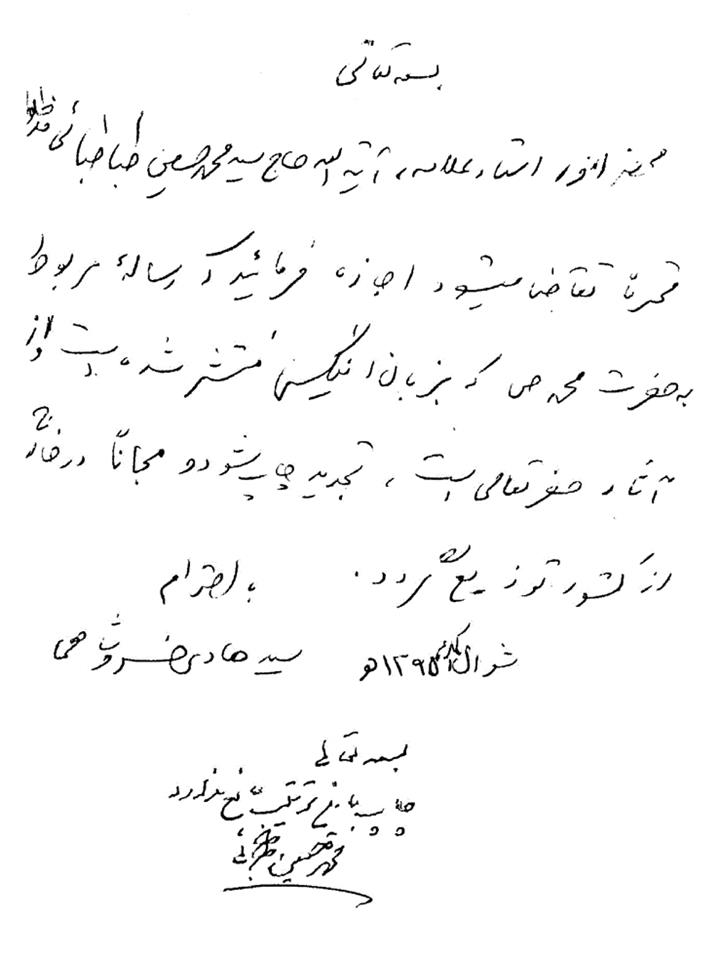 بسمه تعالی
محضر انور استاد علامه، آیة الله حاج سید محمد حسین طباطبائی مدظله
محترماً تقاضا میشود اجازه فرمائید که رسالهٔ مربوط
به حضرت محمد ص که بزبان انگلیسی منتشر شده است و از
آثار حضرتعالی است، تجدید چاپ شود و مجاناً در خارج
از کشور توزیع گردد. با احترام
شوال ۱۳۹۵ هـ سید هادی خسروشاهی
بسمه تعالی
چاپ مانع ندارد
محمد حسین طباطبائی